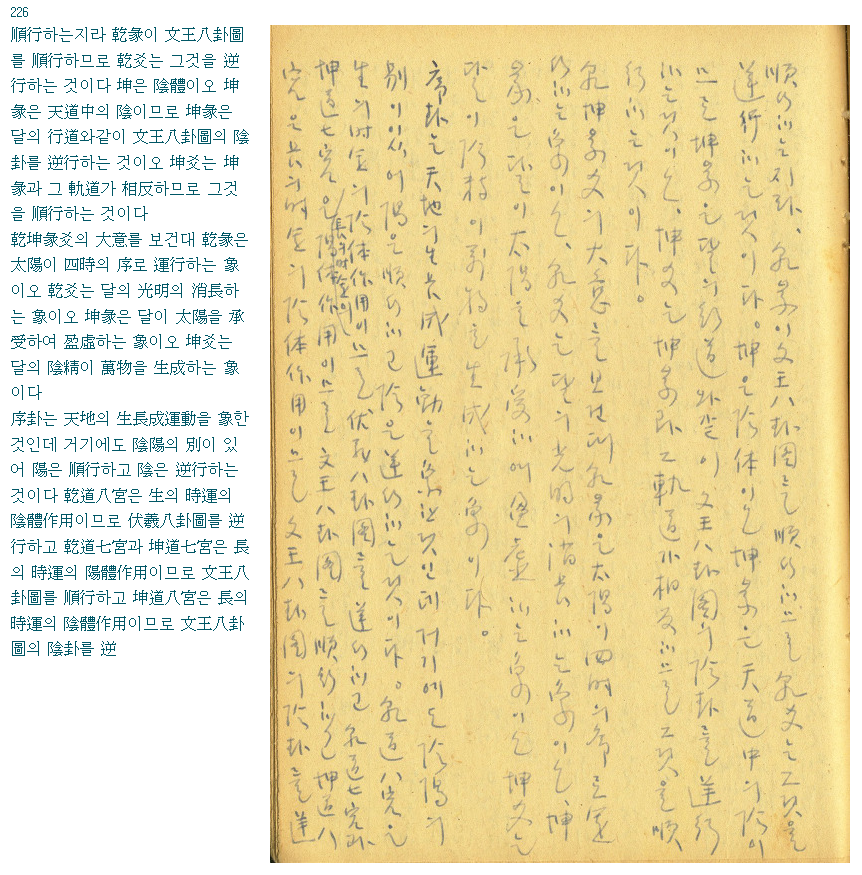 226
順行하는지라 乾彖이 文王八卦圖
를 順行하므로 乾爻는 그것을 逆
行하는 것이다 坤은 陰體이오 坤
彖은 天道中의 陰이므로 坤彖은
달의 行道와같이 文王八卦圖의 陰
卦를 逆行하는 것이오 坤爻는 坤
彖과 그 軌道가 相反하므로 그것
을 順行하는 것이다
乾坤彖爻의 大意를 보건대 乾彖은
太陽이 四時의 序로 運行하는 象
이오 乾爻는 달의 光明의 消長하
는 象이오 坤彖은 달이 太陽을 承
受하여 盈虛하는 象이오 坤爻는
달의 陰精이 萬物을 生成하는 象
이다
序卦는 天地의 生長成運動을 象한
것인데 거기에도 陰陽의 別이 있
어 陽은 順行하고 陰은 逆行하는
것이다 乾道八宮은 生의 時運의
陰體作用이므로 伏羲八卦圖를 逆
行하고 乾道七宮과 坤道七宮은 長
의 時運의 陽體作用이므로 文王八
卦圖를 順行하고 坤道八宮은 長의
時運의 陰體作用이므로 文王八卦
圖의 陰卦를 逆
順行하는지라、乾彖이 文王八卦图를 順行하므로 乾爻는 그것을
逆行하는것이다。坤은 陰体이오 坤彖은 天道中의 陰이
므로 坤彖은 달의 行道와같이 文王八卦图의 陰卦를 逆行
하는것이오、坤爻는 坤彖과 그 軌道가 相反하므로 그것을 順
行하는것이다。
乾坤彖爻의 大意를 보건대 乾彖은 太陽이 四時의 序로 運
行하는 象이오、乾爻는 달의 光明의 消長하는 象이오 坤
彖은 달이 太陽을 承受하여 盈虛하는 象이오 坤爻는
달의 陰精이 萬物을 生成하는 象이다。
序卦는 天地의 生長成運動을 象한것인데 거기에도 陰陽의
別이 있어 陽은 順行하고 陰은 逆行하는것이다。乾道八宮은
生의時運의 陰体作用이므로 伏羲八卦图를 逆行하고 乾道七宮과
坤道七宮은 長의時運의 陽体作用이므로 文王八卦图를 順行하고 坤道八
宮은 長의時運의 陰体作用이므로 文王八卦图의 陰卦를 逆